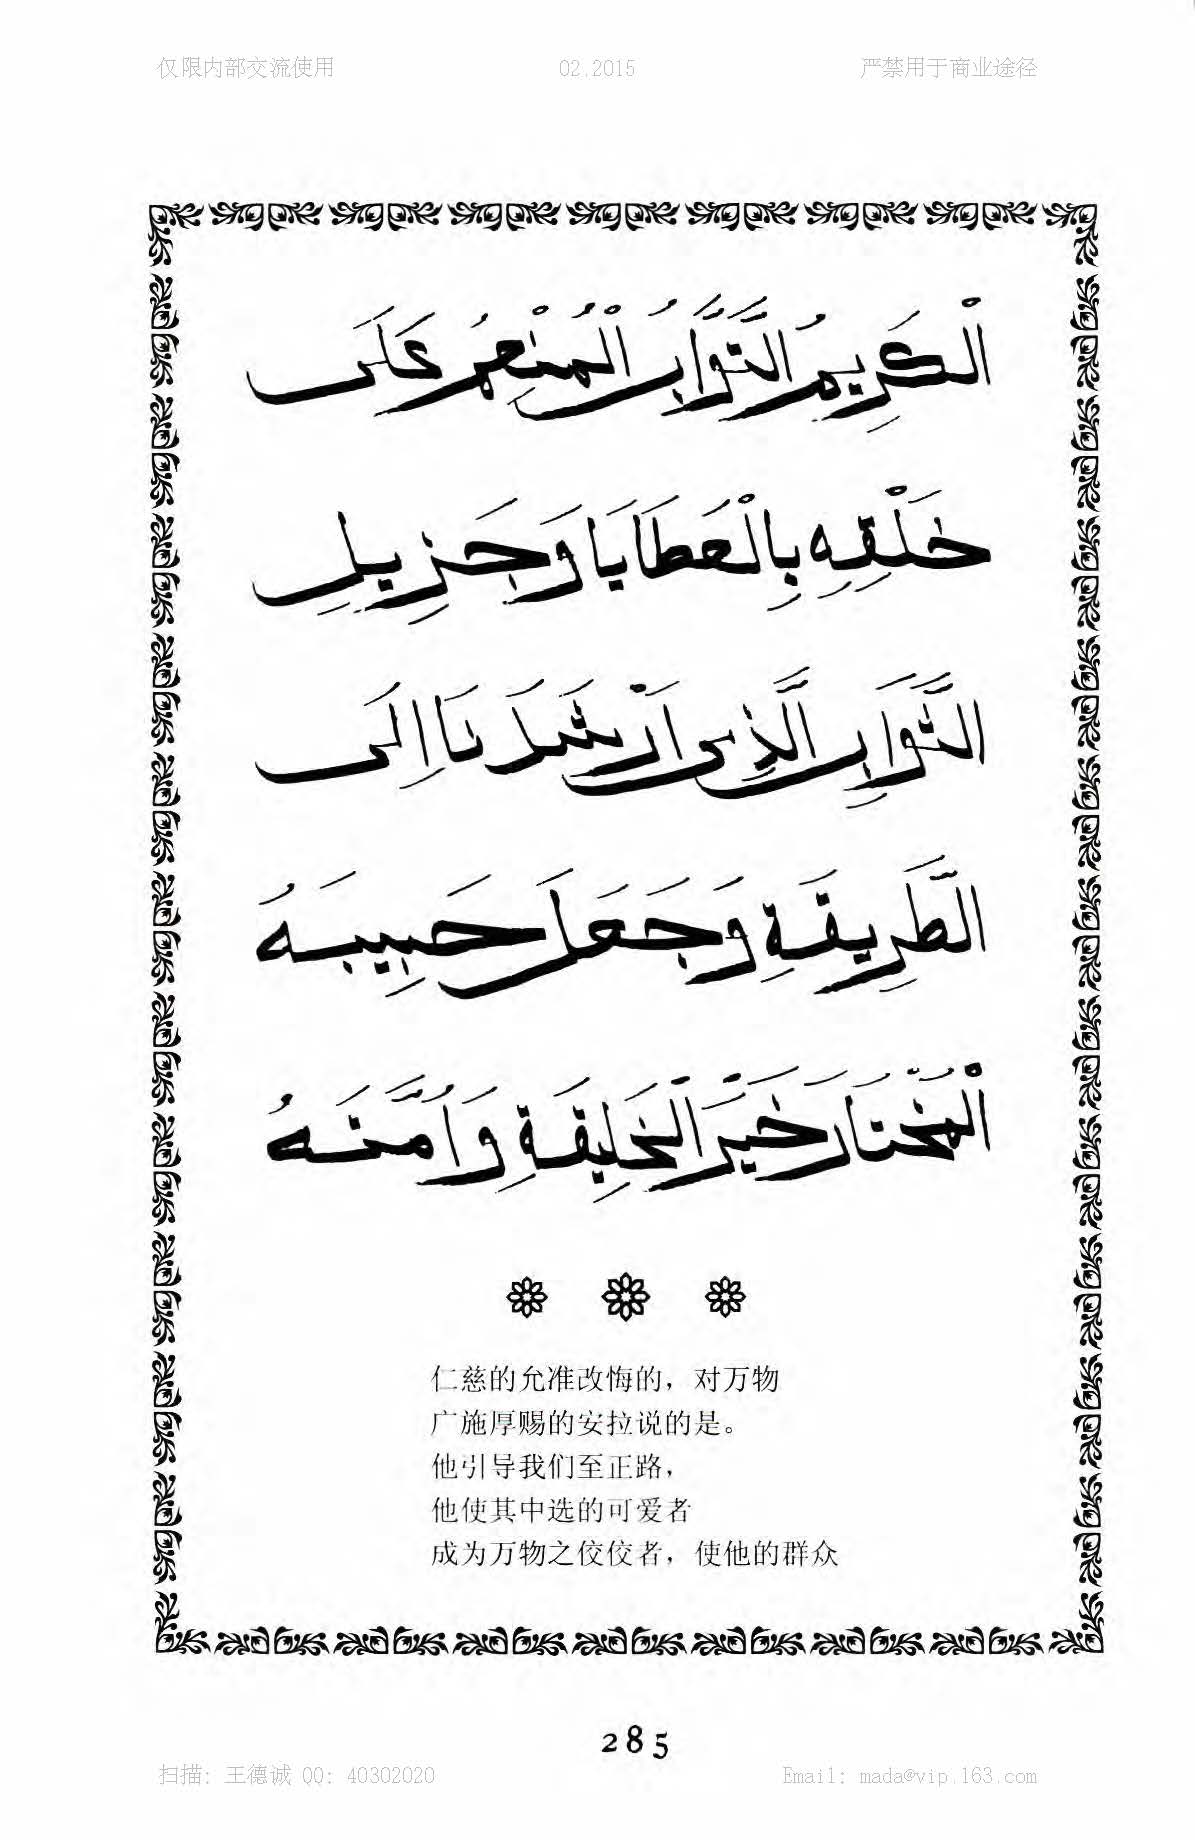 仅限内部交流使用 02.2015 严禁用于商业途径
اَلْكَرِيمُ التَّوَّابُ الْمُنْعِمُ عَلَى
خَلْقِهِ بِالْعَطَايَا وَجَزِيلِ
الثَّوَابِ الَّذِى اَرْشَدَنَا اِلَى
الطَّرِيقَةِ وَجَعَلَ حَبِيبَهُ
الْمُخْتَارَ خَيْرَ الْخَلِيقَةِ وَاُمَّتَهُ
仁慈的允准改悔的，对万物
广施厚赐的安拉说的是。
他引导我们至正路，
他使其中选的可爱者
成为万物之佼佼者，使他的群众
285
扫描: 王德诚 QQ: 40302020 Email: mada@vip.163.com